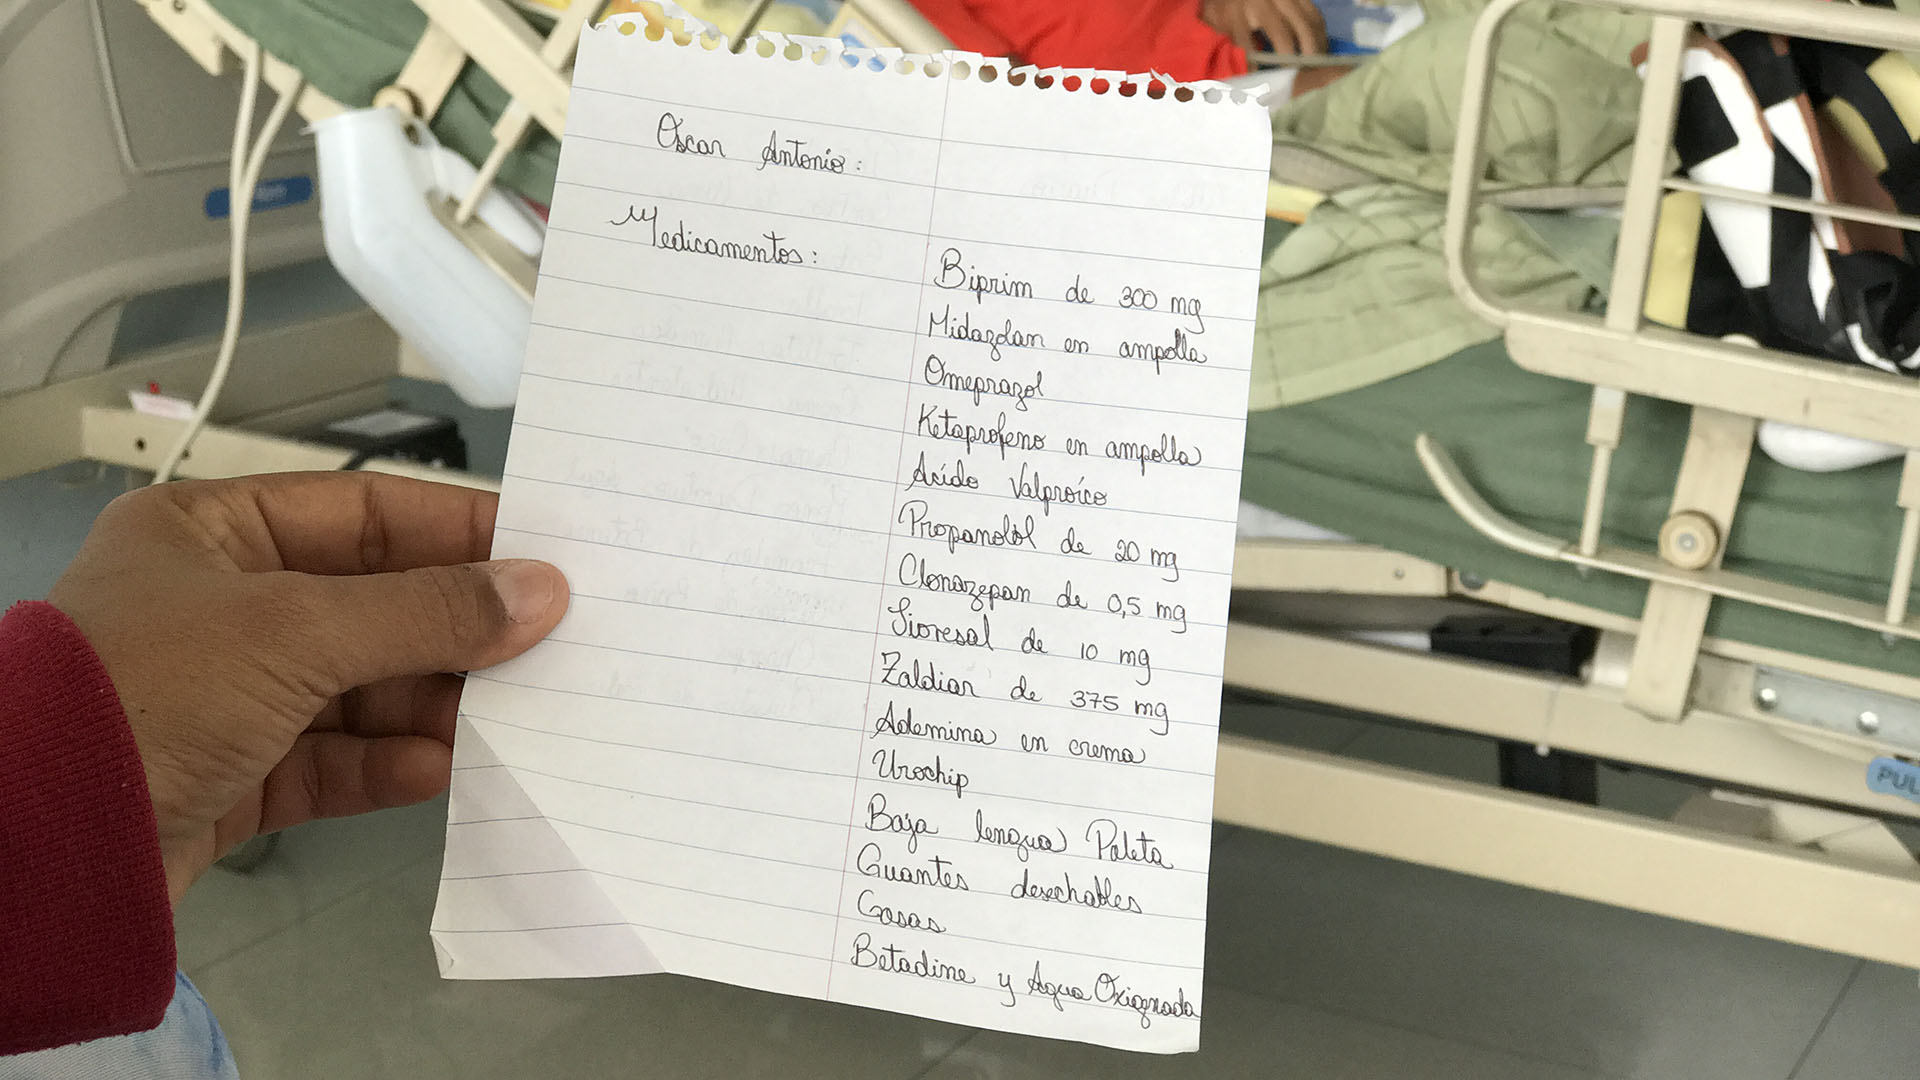 Óscar Antonio:
Medicamentos:
Biprim de 300 mg
Midazolan en ampolla
Omeprazol
Ketaprofeno en ampolla
Acído Valproíco
Propanolól de 20 mg
Clonazepan de 0,5 mg
Lioresal de 10 mg
Zaldiar de 375 mg
Ademina en crema
Urochip
Baja lengua Paleta
Guantes desechables
Gasas
Betadine y Agua Oxigenada
PUL